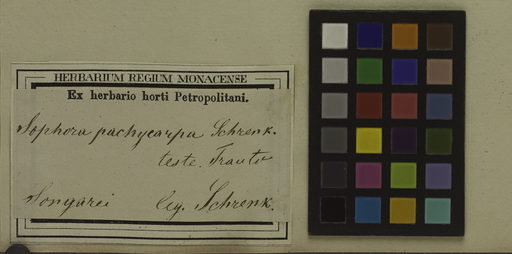 HERBARIUM REGIUM MONACENSE
Ex herbario horti Petropolitani.
Sophora pachycarpa Schrenk.
teste. Trautv
Songarei leg. Schrenk.